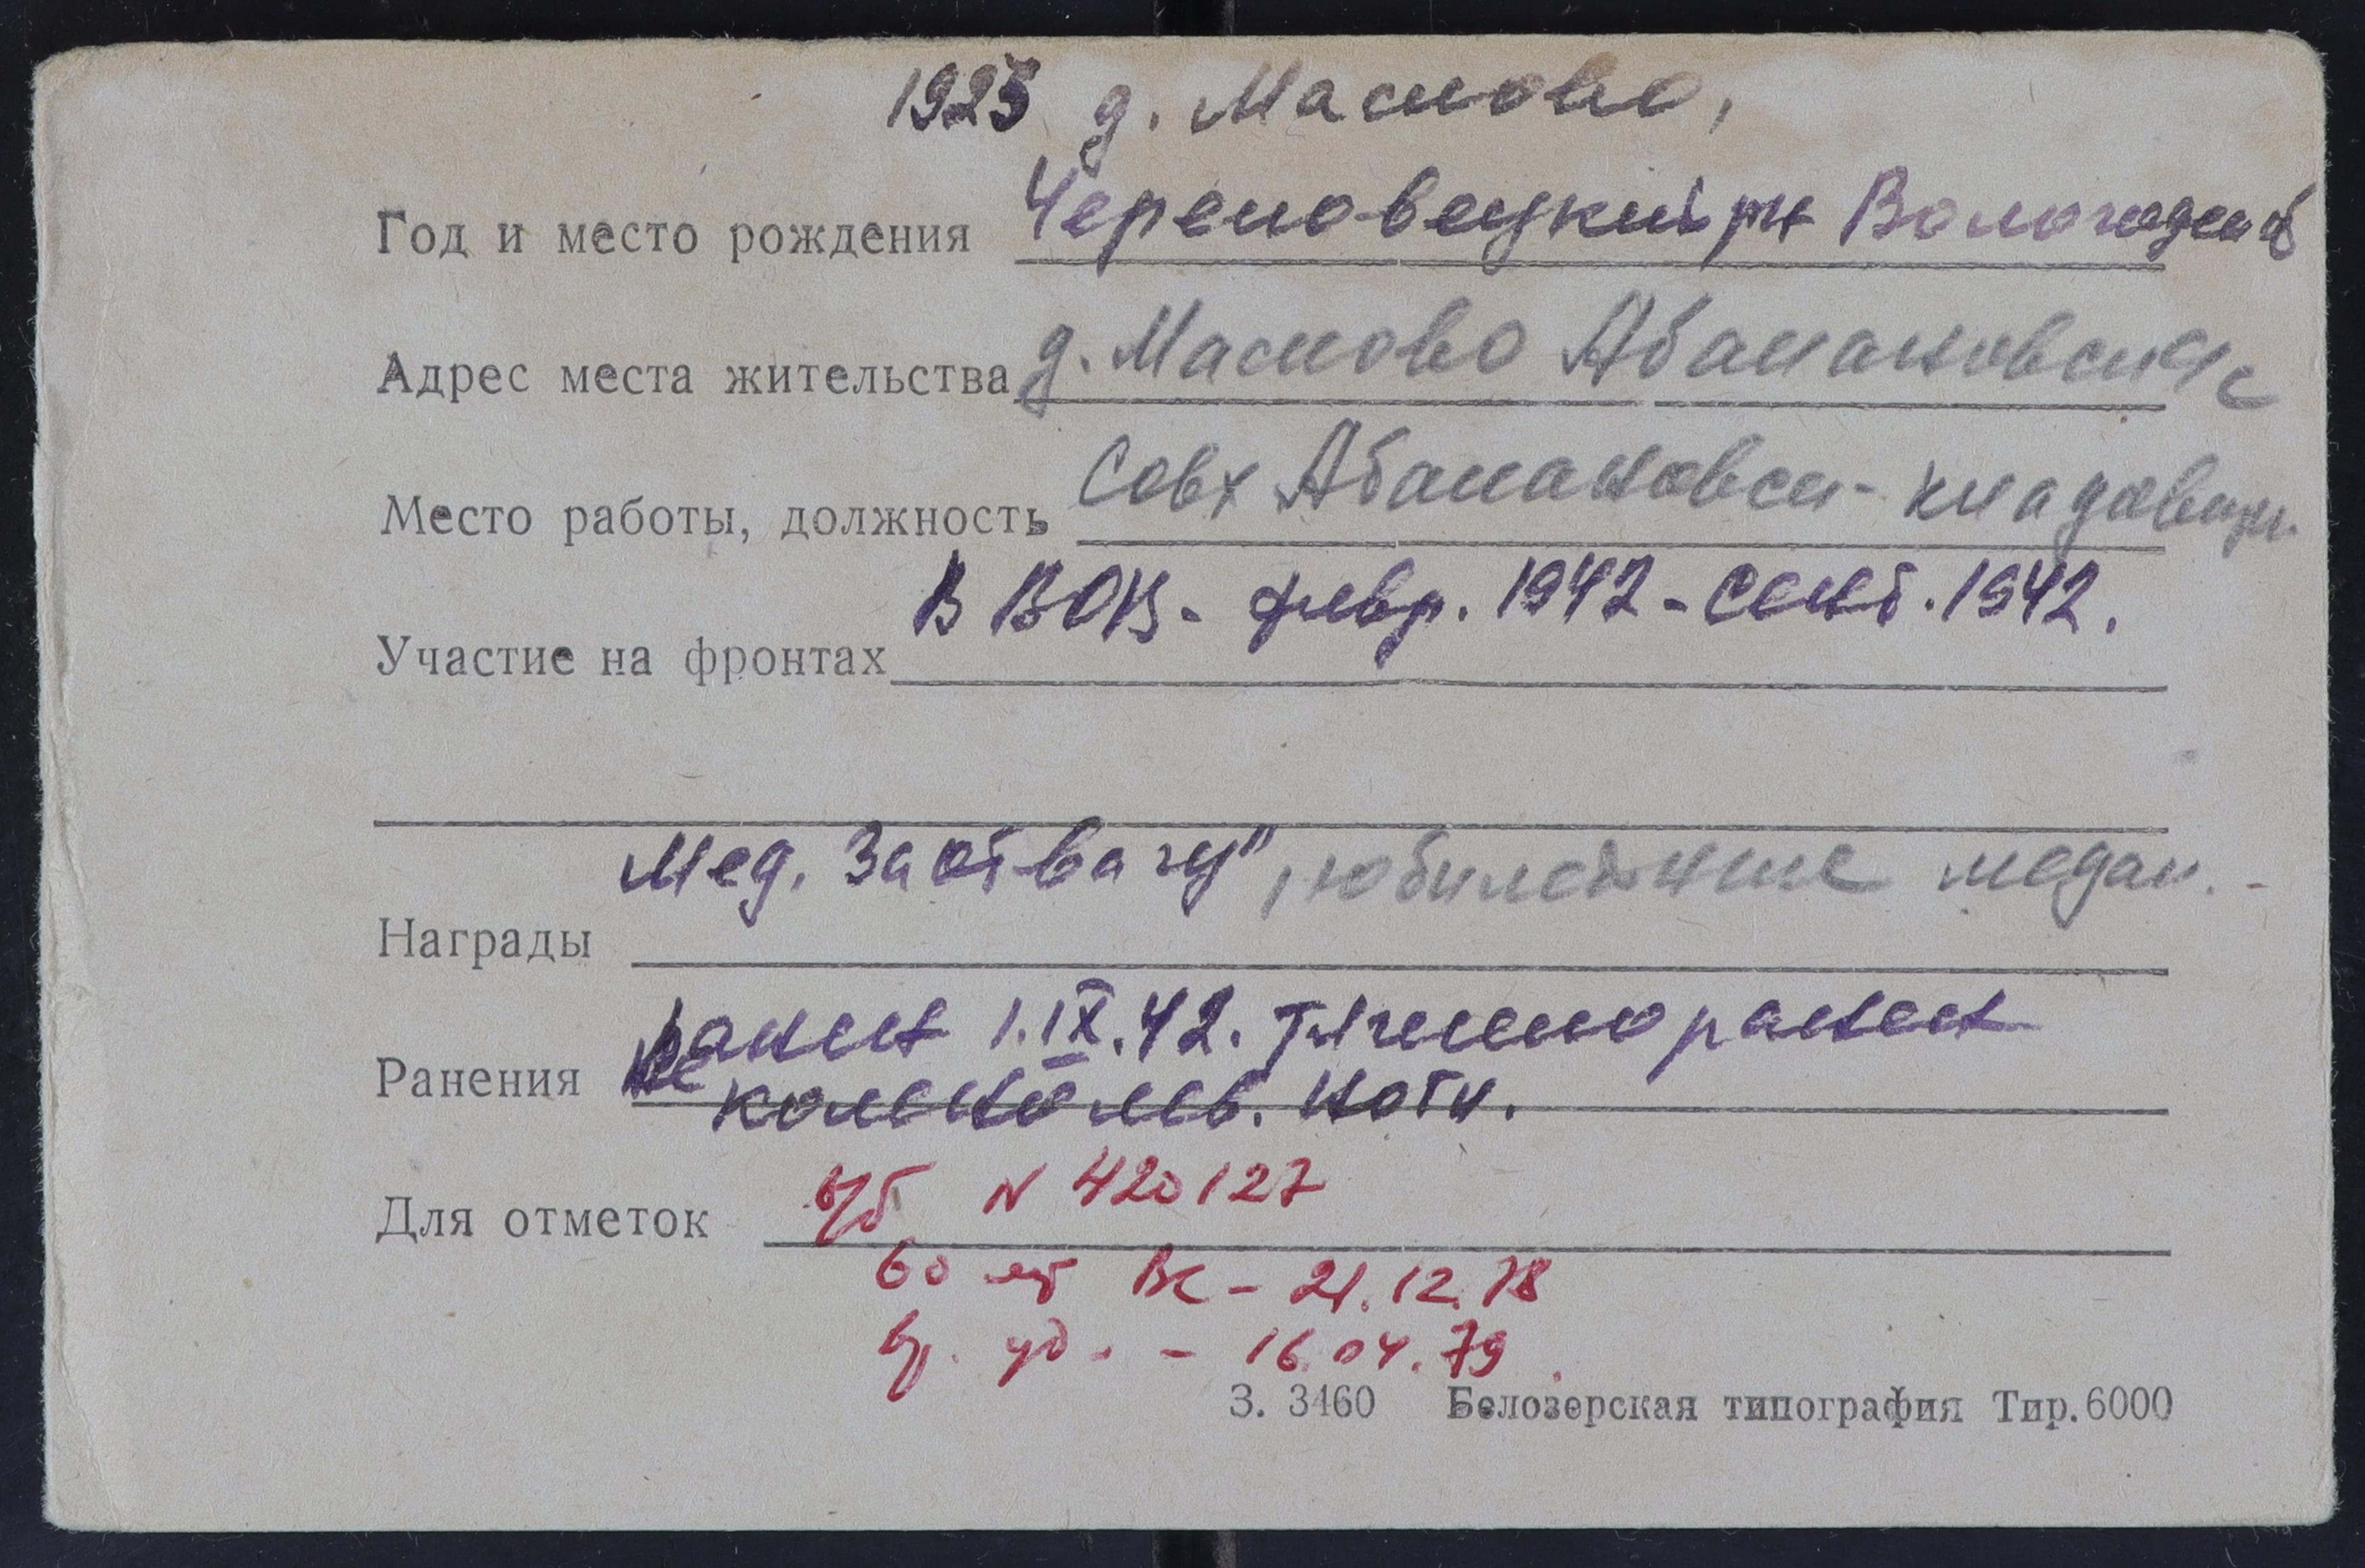 1923 д. Маслово,
Год и место рождения Череповецкий рн Вологодск об
Адрес места жительства д. Маслово Абакановский с
Место работы, должность Совх Абакановск - кладовщик.
В ВОВ - февр. 1942 - сент. 1942.
Участие на фронтах
Мед. За отвагу", юбилейные медал. -
Награды
ранен 1.IX.42. тяжело ранен
Ранения
колено лев. ноги.
Для отметок Уб N 420127
60 лет ВС - 21.12.78
Вр. уд. - 16.04.79
З. 3460 Белозерская типография Тир. 6000